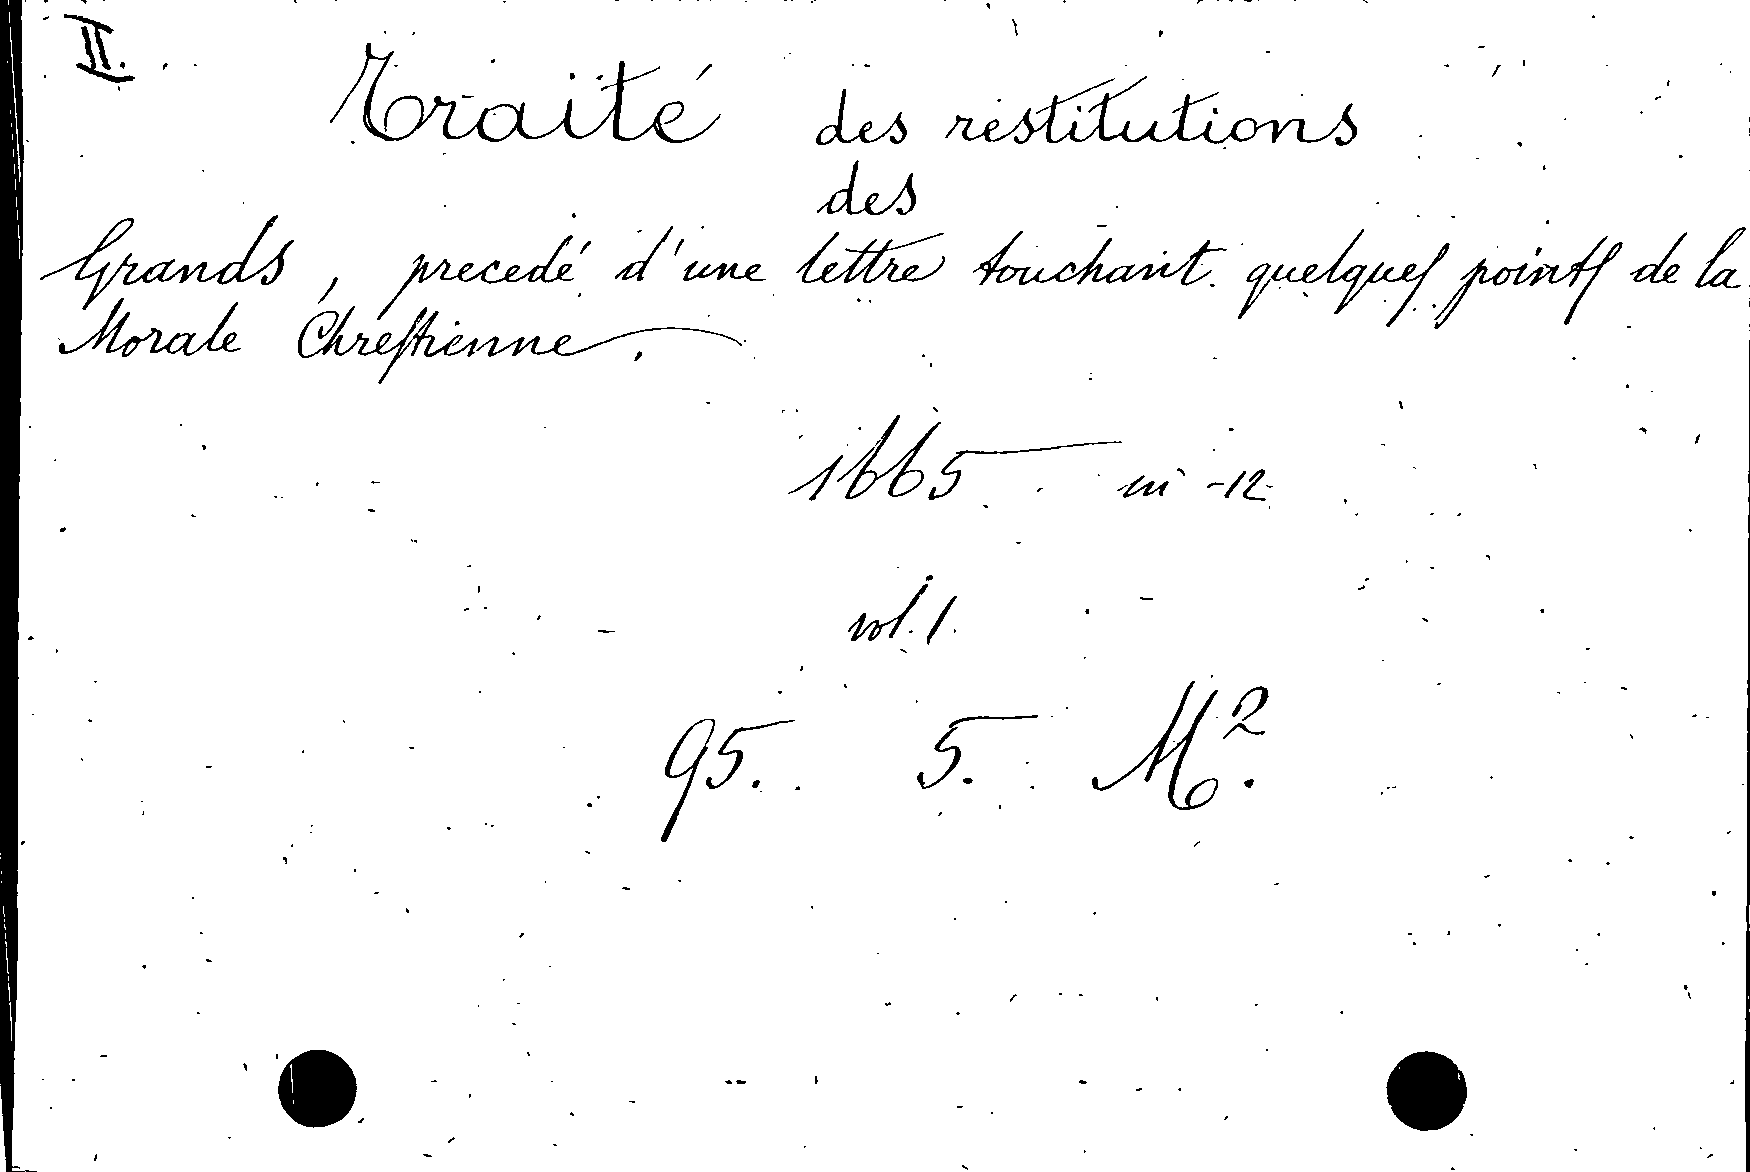 II.
Traité des restitutions
des
Grands, precedé d'une lettre touchant quelques points de la
Morale Chrestienne.
1665 in-12
vol. 1.
95. 5. M².